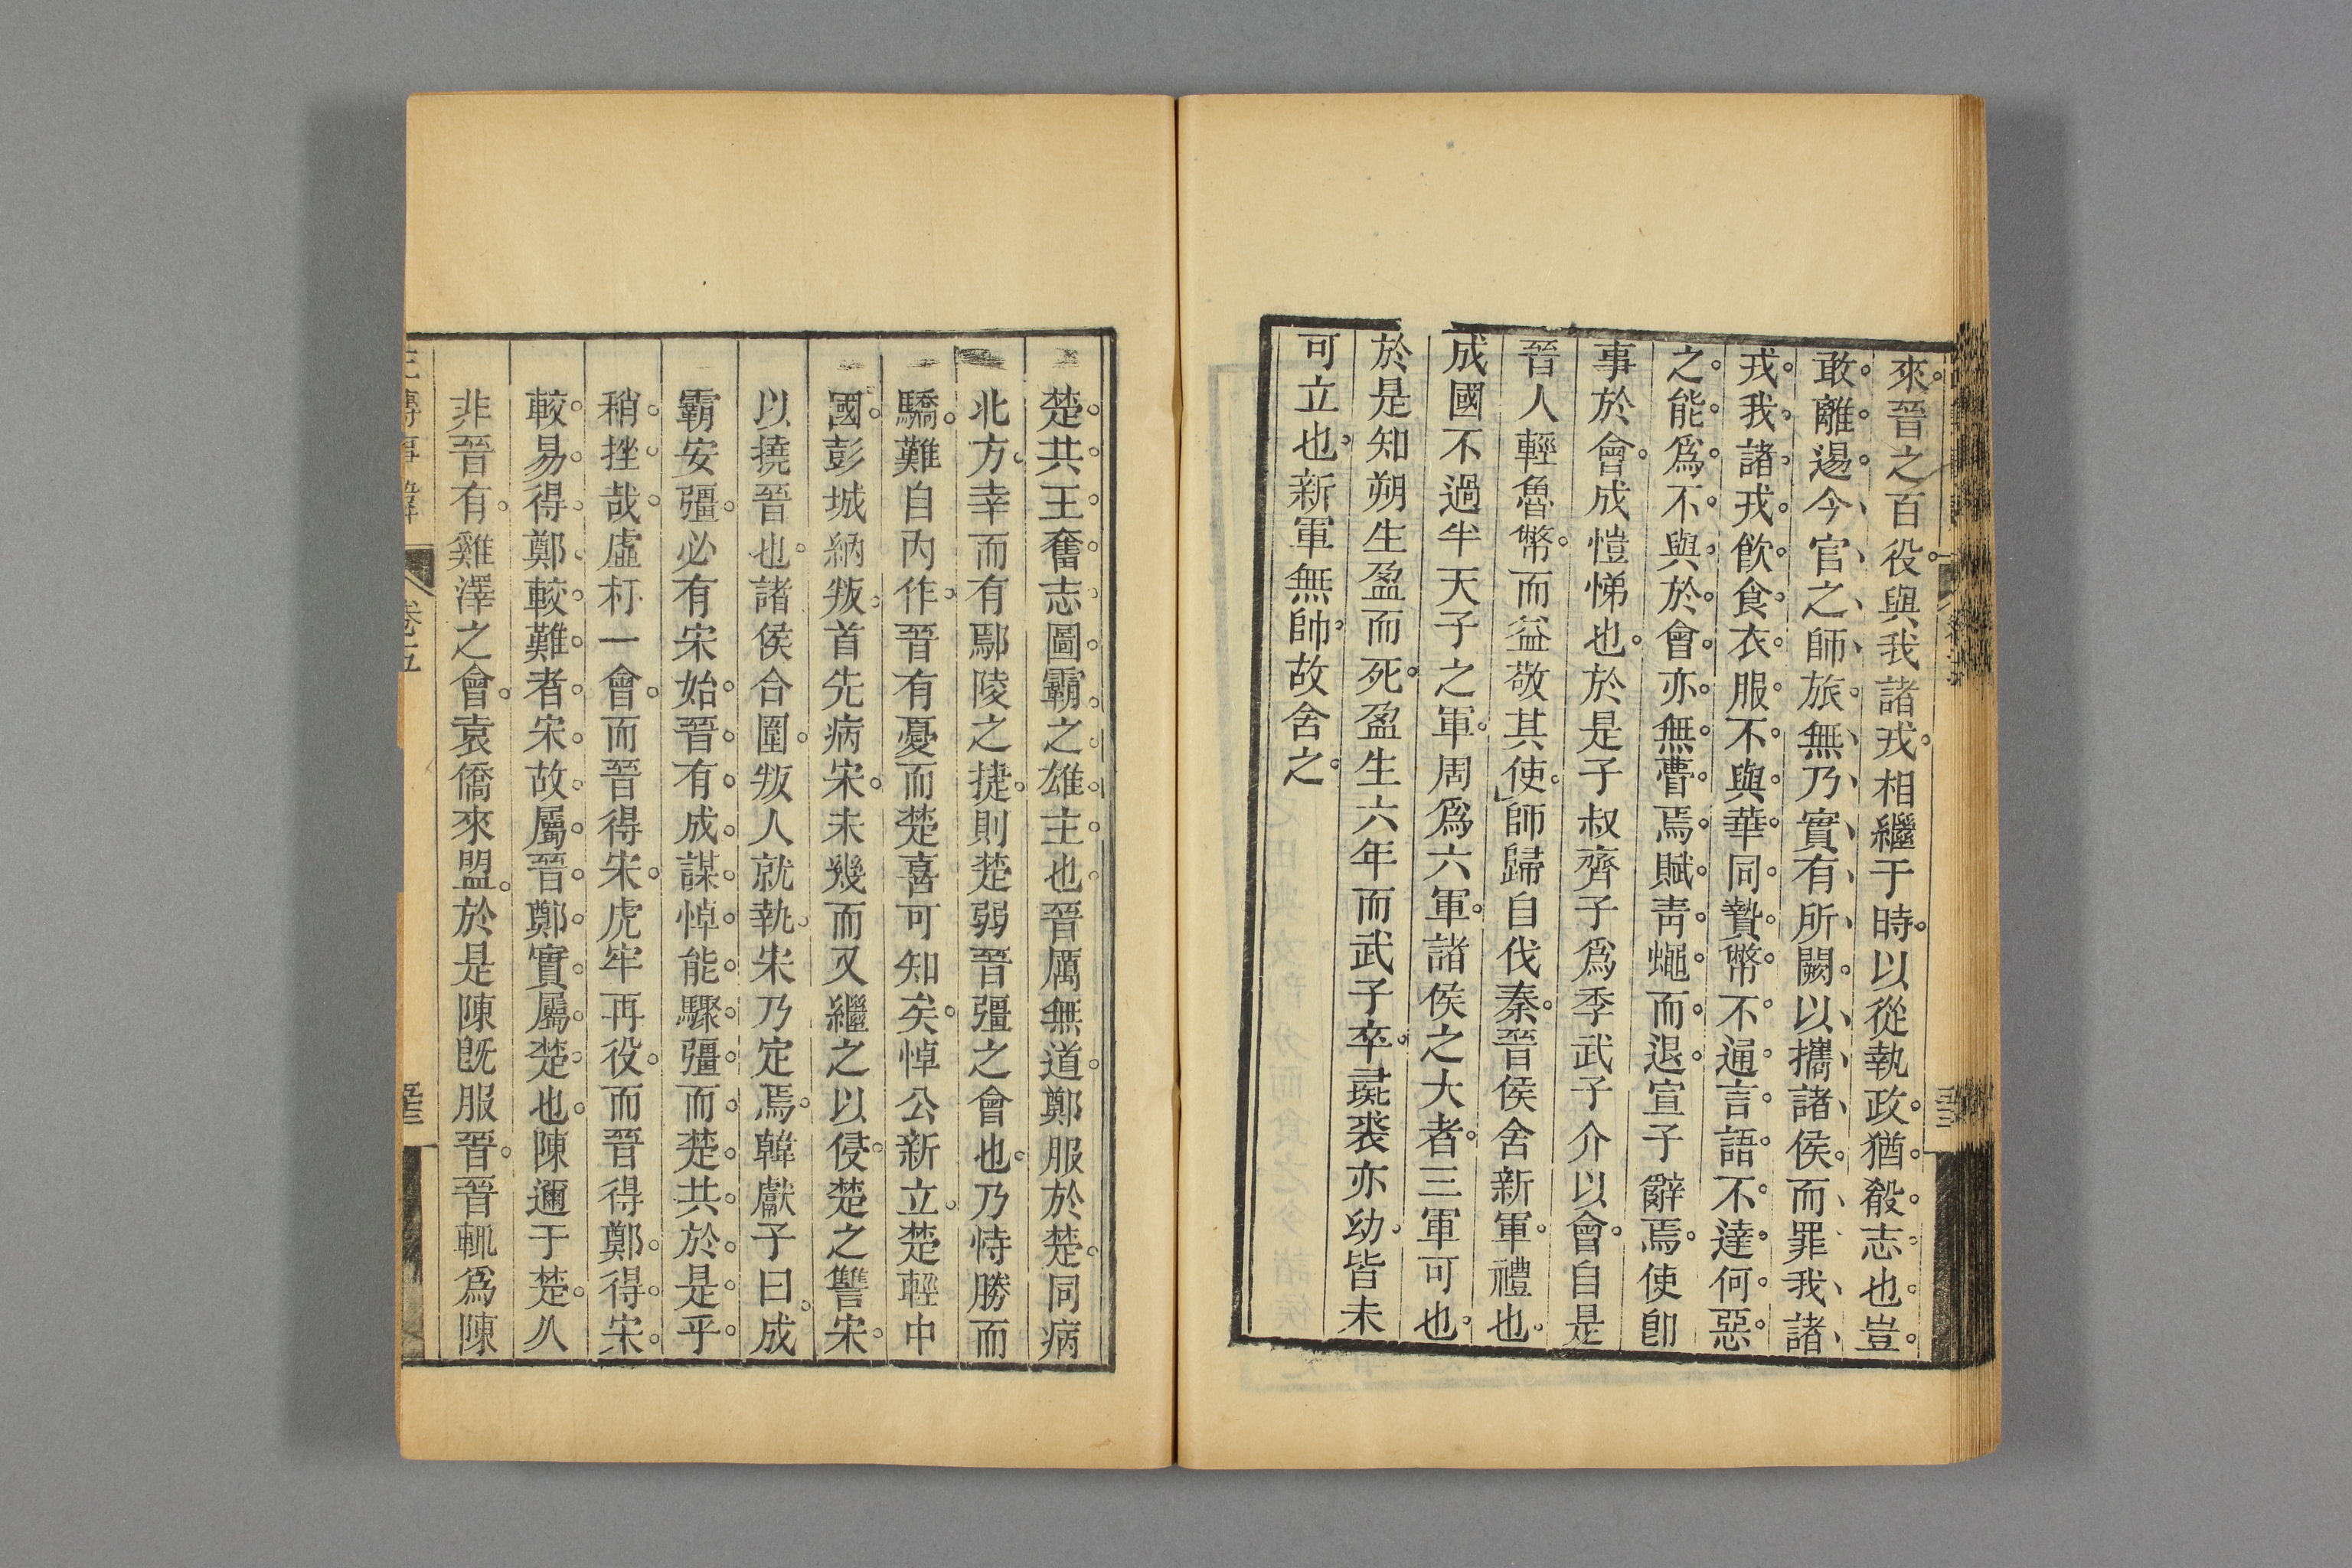 來晉之百役與我諸戎相繼于時以從執政猶殽志也豈
敢離逷今官之師旅無乃實有所闕以攜諸侯而罪我諸
戎我諸戎飮食衣服不與華同贄幣不通言語不達何惡
之能爲不與於會亦無瞢焉賦靑蠅而退宣子辭焉使卽
事於會成愷悌也於是子叔齊子爲季武子介以會自是
晉人輕魯幣而益敬其使師歸自伐秦晉侯舍新軍禮也
成國不過半天子之軍周爲六軍諸侯之大者三軍可也
於是知朔生盈而死盈生六年而武子卒彘裘亦幼皆未
可立也新軍無帥故舍之
楚共王奮志圖霸之雄主也晉厲無道鄭服於楚同病
北方幸而有鄢陵之捷則楚弱晉彊之會也乃恃勝而
驕難自內作晉有憂而楚喜可知矣悼公新立楚輕中
國彭城納叛首先病宋未幾而又繼之以侵楚之讐宋
以撓晉也諸侯合圍叛人就執宋乃定焉韓獻子曰成
霸安彊必有宋始晉有成謀悼能驟彊而楚共於是乎
稍挫哉虛朾一會而晉得宋虎牢再役而晉得鄭得宋
較易得鄭較難者宋故屬晉鄭實屬楚也陳邇于楚久
非晉有雞澤之會袁僑來盟於是陳旣服晉晉輒爲陳
卷五